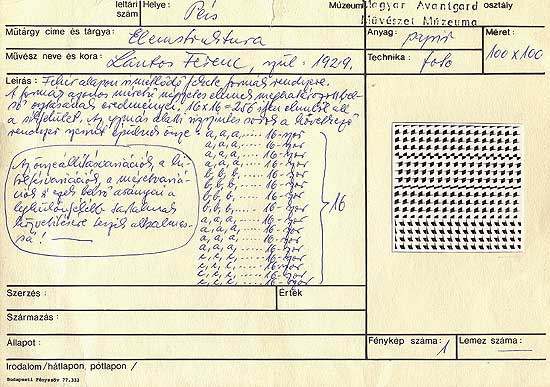 leltári szám
Helye: Pécs
Múzeum Magyar Avantgard osztály
Művészet Múzeuma
Műtárgy címe és tárgya: Elemstruktura
Anyag: papir
Méret: 100x100
Művész neve és kora: Lantos Ferenc, szül: 1929.
Technika: foto
Leírás: Fehér alapon ismétlődő fekete formák rendszere.
A formák azonos méretű négyzetes elemek meghatározott bel-
ső osztásának eredményei. 16x16=256 ilyen elemből áll
a képfelület. Az egymás alatti vízszintes sorok a következő
rendszer szerint épülnek össze:
a, a, a, ..... 16-szor
a, a, a, ..... 16-szor
a, a, a, .... 16-szor
a, a, a, .... 16-szor
b, b, b, .... 16-szor
b, b, b, .... 16-szor
b, b, b, .... 16-szor
b, b, b, .... 16-szor
a, a, a, .... 16-szor
a, a, a, .... 16-szor
a, a, a, .... 16-szor
a, a, a, .... 16-szor
16
Az összeállításvariációk, a
variációk, a méretvariá-
ciók s egyéb belső arányai a
legkülönfélébb tartalmak
közvetítésére teszik alkalmas-
sá!
Szerzés:
Érték
Származás:
Állapot:
Fénykép száma: 1
Lemez száma:
Irodalom/hátlapon, pótlapon/
Budapesti Fényszöv 77.333